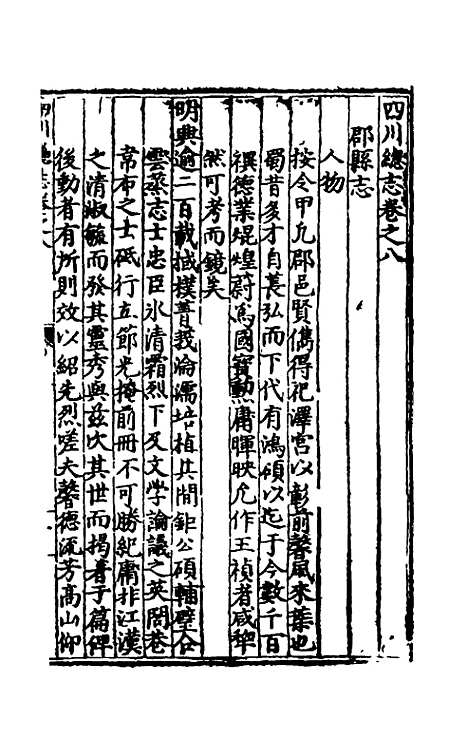 四川總志卷之八
郡縣志
人物
按令甲凡郡邑賢儁得祀澤宮以彰前馨風來葉也
蜀昔多才自萇弘而下代有鴻碩以迄于今數千百
禩德業焜煌蔚爲國寶勲庸暉映允作王楨者咸犂
然可考而鏡矣
明興逾二百載棫樸菁莪淪濡培植其間鉅公碩輔璧合
雲蒸志士忠臣氷清霜烈下及文學論議之英閭巷
韋布之士砥行立節光掩前冊不可勝紀庸非江漢
之清淑毓而發其靈秀與茲次其世而揭著于篇俾
後動者有所則效以紹先烈嗟夫馨德流芳高山仰